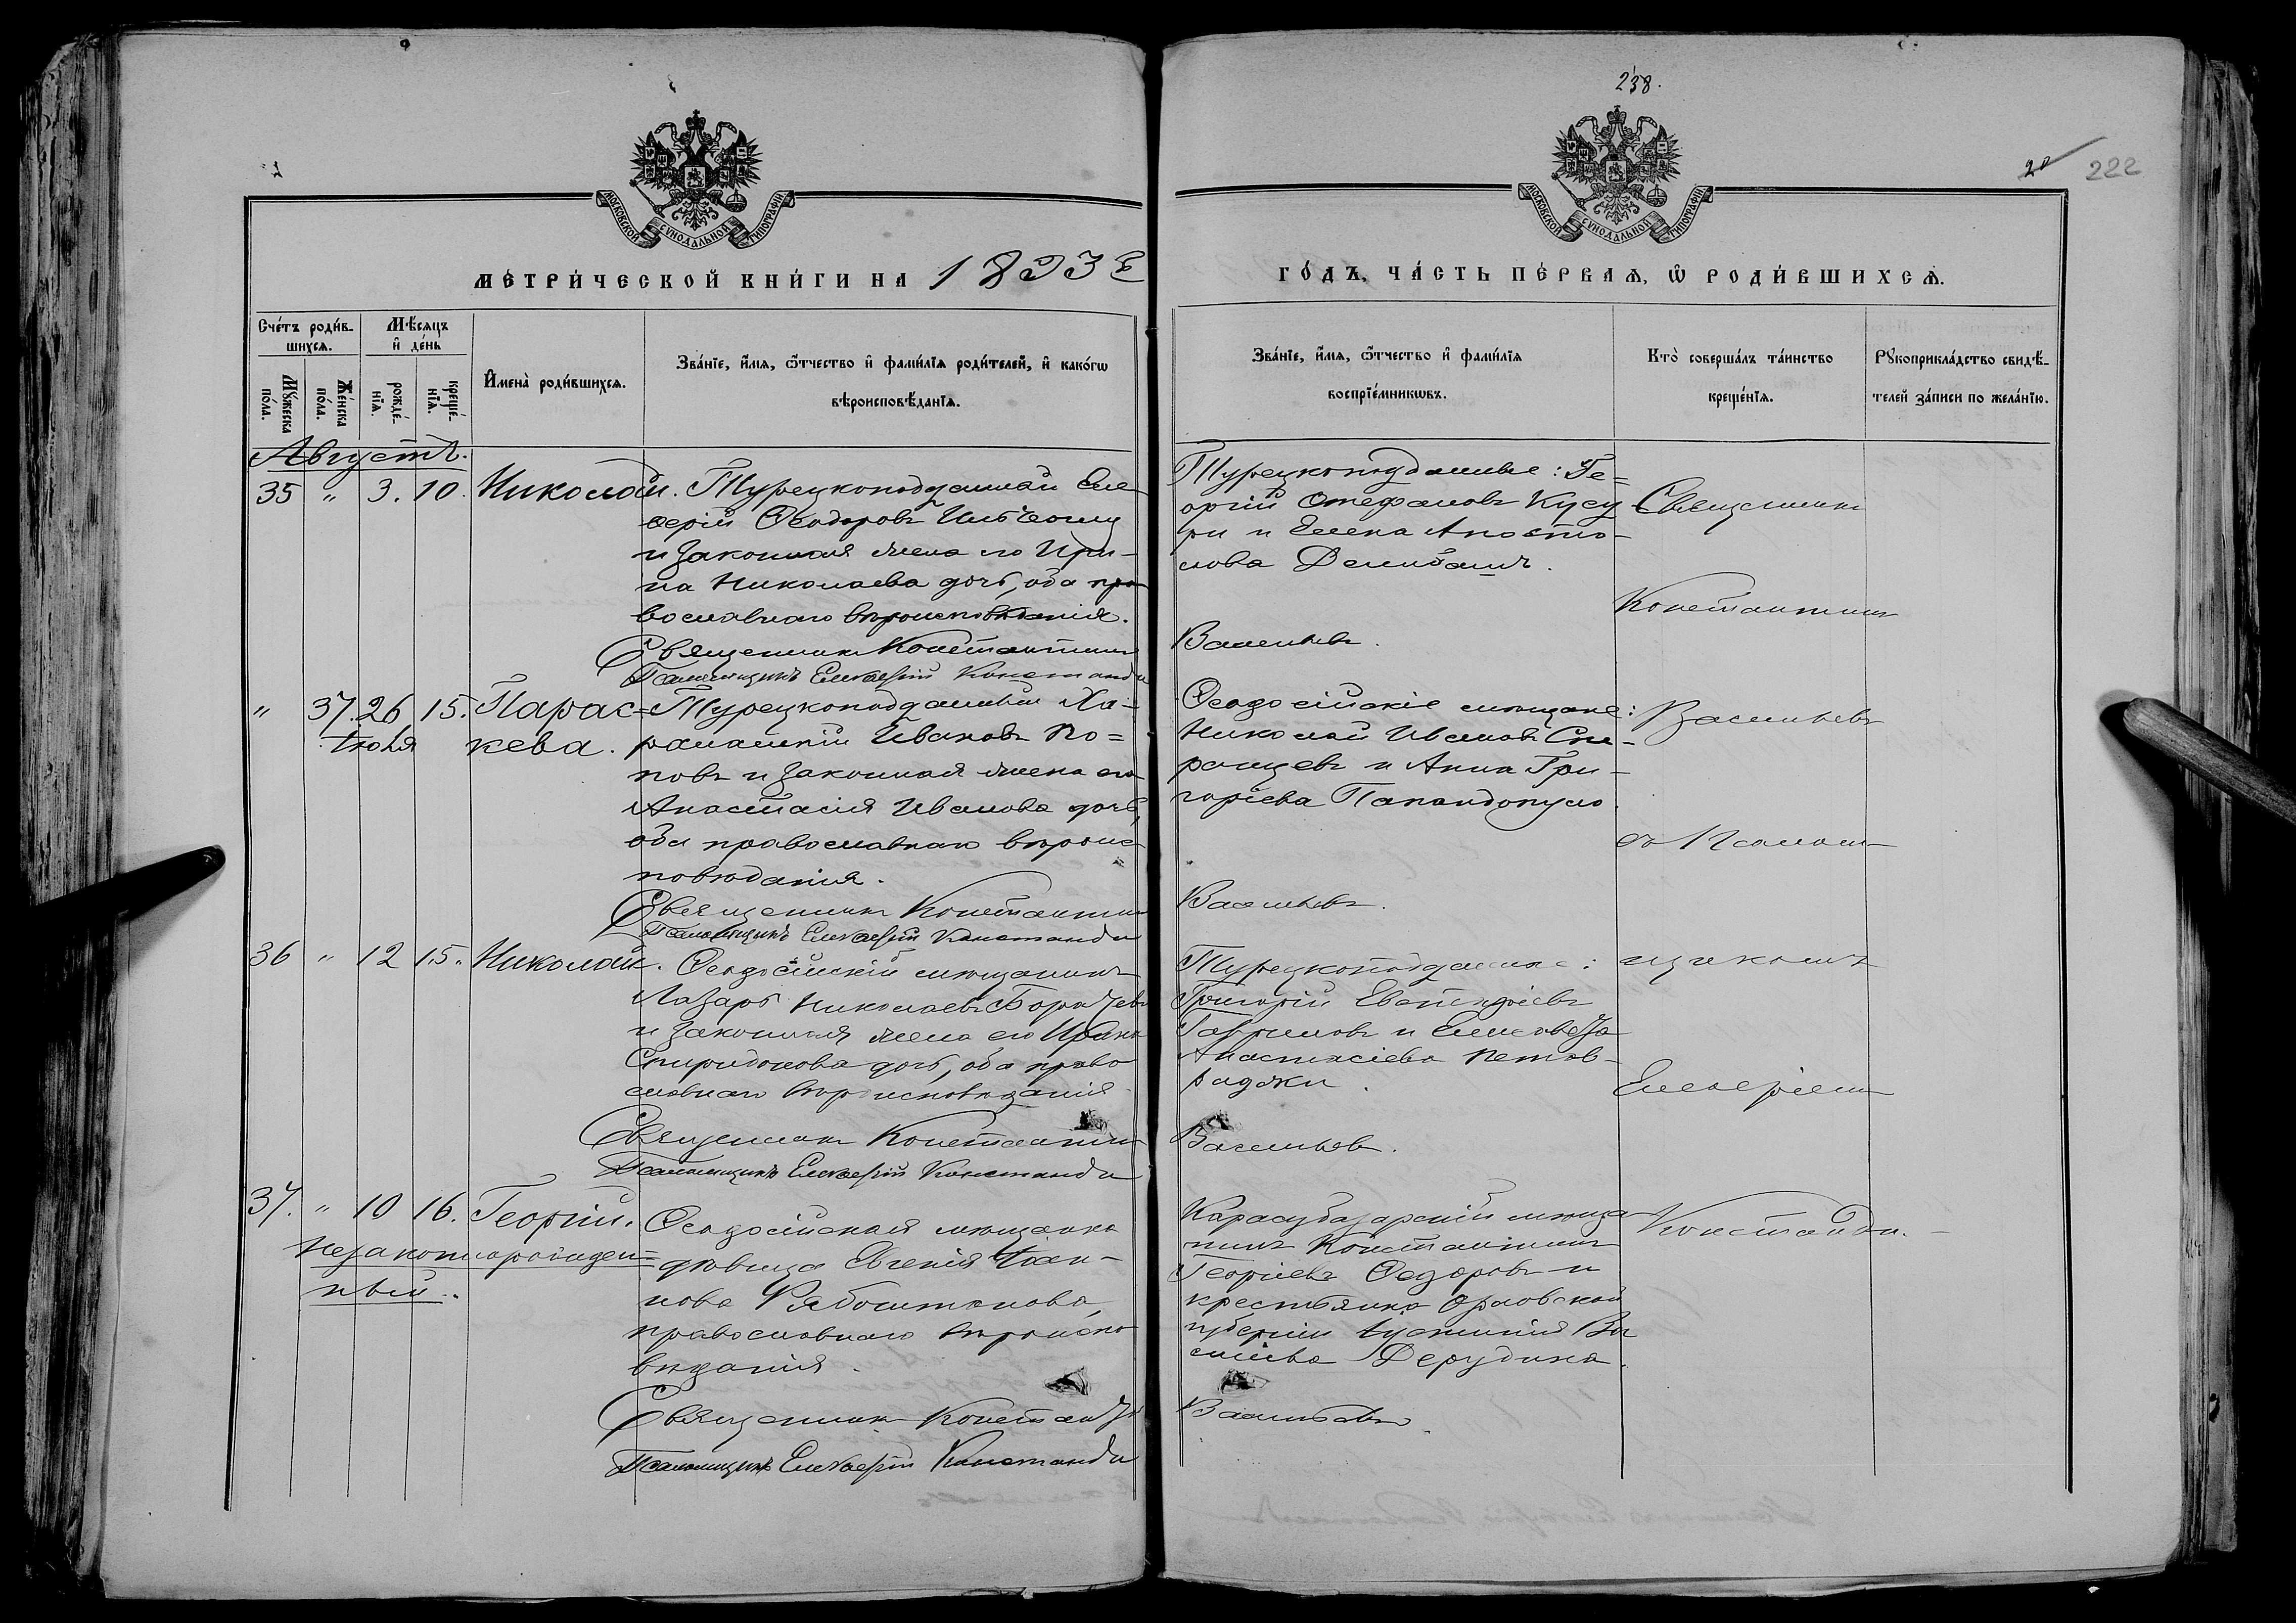 238.
222
МОСКОВСКОЙ СѴНОДАЛЬНОЙ ТИПОГРАФІИ
МОСКОВСКОЙ СѴНОДАЛЬНОЙ ТИПОГРАФІИ
МЕТРИ́ЧЕСКОЙ КНИ́ГИ НА 1893 й
ГО́ДЪ, ЧА́СТЬ ПЕ́РВАѦ, Ѡ РОДИ́ВШИХСѦ.
Сче́тъ роди́в-
шихсѧ.
Мѣ́сѧцъ
и҆ де́нь
Мꙋ́жеска
по́ла.
Же́нска
по́ла.
рожде́-
нїѧ.
креще́-
нїѧ.
И҆мена̀ роди́вшихсѧ.
Зва́нїе, и҆́мѧ, ѻ҆́тчество и҆ фами́лїѧ роди́телей, и҆ како́гѡ
вѣроисповѣ́данїѧ.
Зва́нїе, и҆́мѧ, ѻ҆́тчество и҆ фами́лїѧ
воспрїе́мникѡвъ.
Кто̀ соверша́лъ та́инство
креще́нїѧ.
Рꙋкоприкла́дство свидѣ́-
телей за́писи по жела́нїю.
Августъ.
35 " 3. 10. Николай. Турецкоподданный Еле
ѳерій Ѳеодоровъ
и законная жена его Ири-
на Николаева дочь, оба пра
вославнаго вѣроисповѣданія.
Священникъ Константинъ
Псаломщикъ Елевѳерій Констанди
Турецкоподданные: Ге-
оргій Стефановъ Кусу
ри и Елена Апосто-
лова
Васильевъ.
Священникъ
Константинъ
" 37. 26 15. Парас=
Іюля кева.
Турецкоподданный Ха-
рлампій Ивановъ По=
повъ и законная жена его
Анастасія Иванова дочь,
оба православнаго вѣроис
повѣданія.
Священникъ Константинъ
Псаломщикъ Елевѳерій Констанди
Ѳеодосійскіе мѣщане:
Николай Ивановъ Спе-
ранцевъ и Анна Гри-
горіева Папандопуло.
Васильевъ.
Васильевъ
съ Псалом
36 " 12 15. Николай. Ѳеодосійскій мѣщанинъ
Лазарь Николаевъ
и законная жена его
Спиридонова дочь, оба право
славнаго вѣроисповѣданія
Священникъ Константинъ
Псаломщикъ Елевѳерій Констанди
Турецкоподданные:
Григорій
Гавриловъ и Елисавета
Анастасіева
Васильевъ.
щикомъ
Елевѳеріемъ
37. " 10 16. Георгій.
Незаконнорожден=
ный.
Ѳеодосійская мѣщанка
дѣвица Евгенія
нова
православнаго вѣроиспо
вѣданія.
Священникъ Константинъ
Псаломщикъ Елевѳерій Констанди
Карасубазарскій мѣща
нинъ Константинъ
Георгіевъ Ѳедоровъ и
крестьянка Орловской
губерніи Ва
сильева
Васильевъ
Констанди.